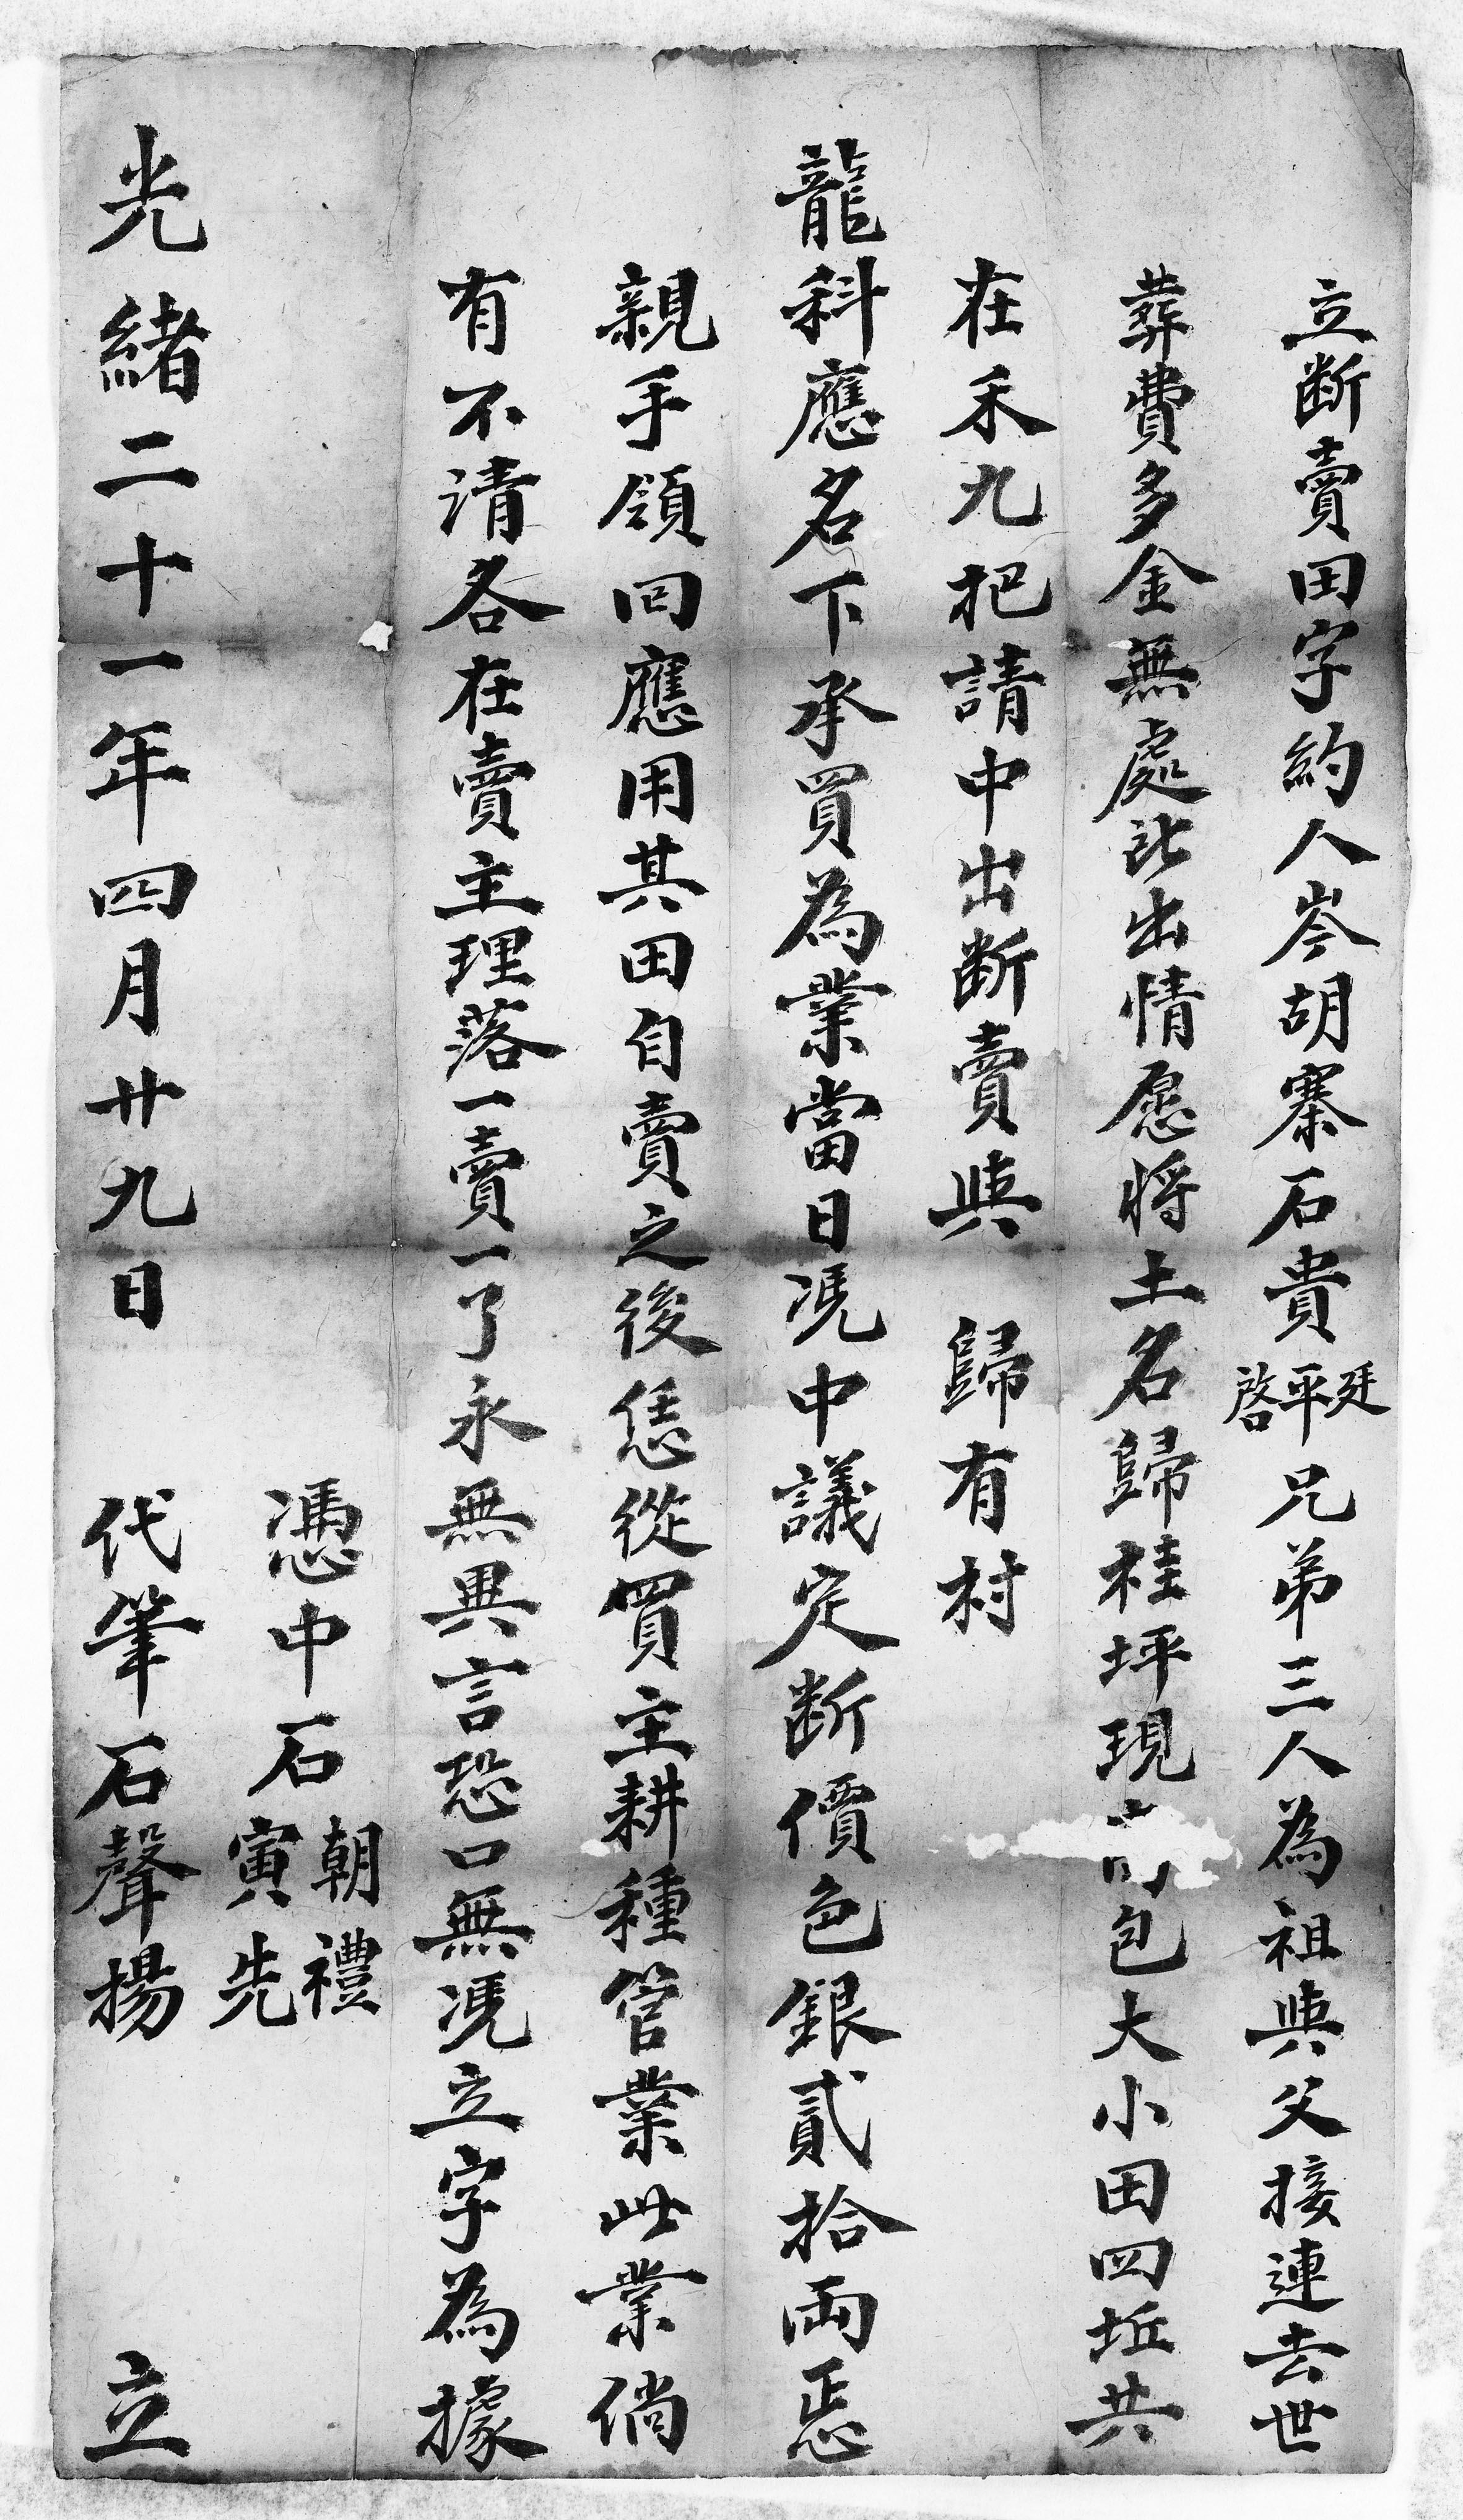 立断賣田字約人岑胡寨石貴廷平啓兄弟三人為祖與父接連去世
葬費多金無處訴出情愿將土名歸桂坪現包大小田四坵共
在禾九把請中出断賣與 歸有村
龍科應名下承買為業當日憑中議定断價色銀貳拾両
親手領回應用其田自賣之後恁從買主耕種管業此業倘
有不清各在賣主理落一賣一了永無異言恐口無凴立字為據
憑中石朝禮寅先
代筆石聲揚
光緒二十一年四月廿九日 立